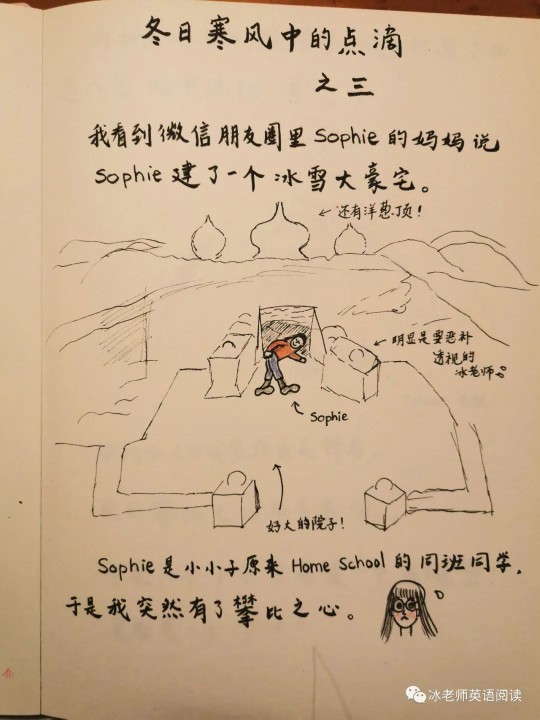 冬日寒风中的点滴
之三
我看到微信朋友圈里Sophie的妈妈说
Sophie建了一个冰雪大豪宅。
←还有洋葱顶!
←明显是要恶补
透视的
冰老师
Sophie
好大的院子!
Sophie是小小子原来Home School的同班同学,
于是我突然有了攀比之心。
冰老师英语阅读